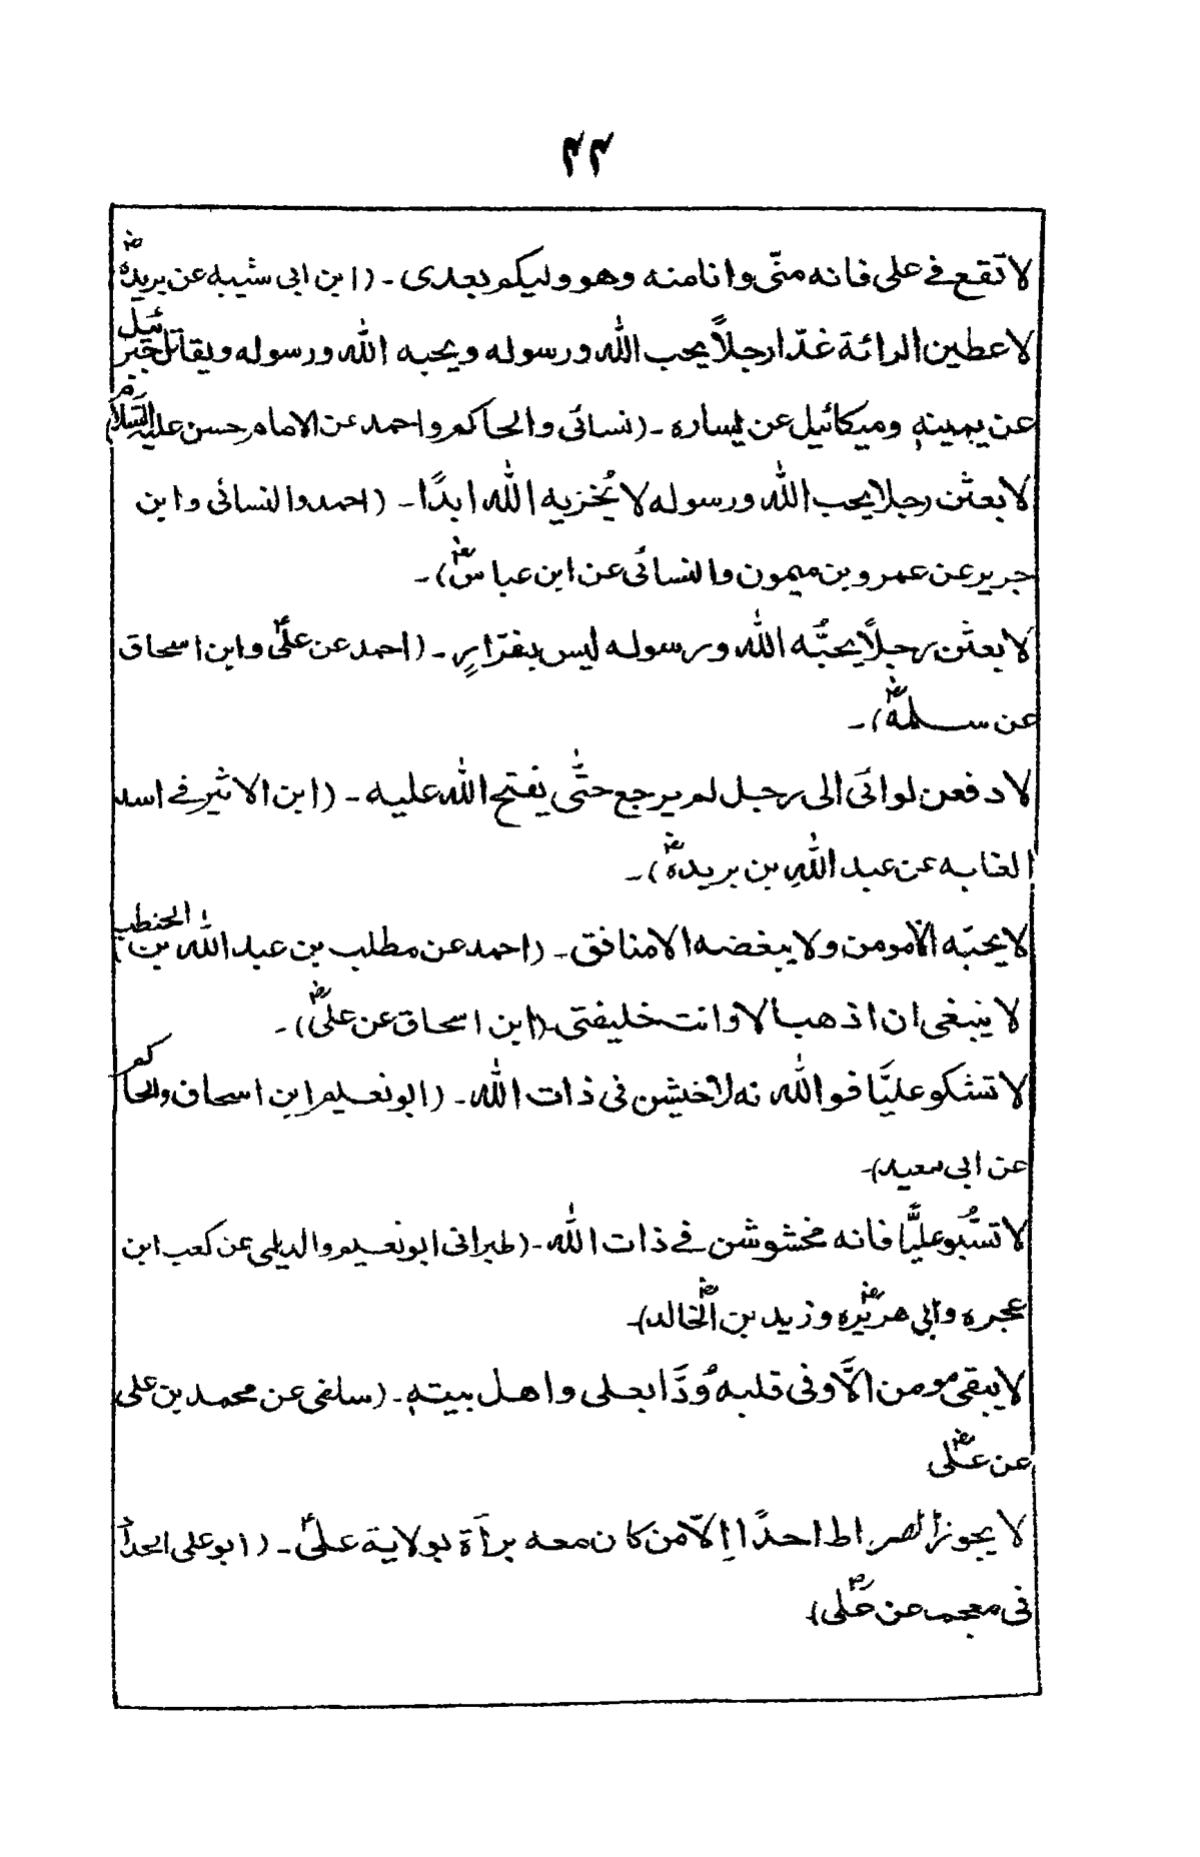 ۴۴
لا تقع فی علی فانه منّی وانا منه وهو ولیکم بعدی ۔ (ابن ابی شیبه عن بریدہؓ
لا عطین الرائة غدّا رجلاً یحب الله ورسوله ویحبه الله ورسوله ویقاتل جبرئیل
عن یمینهٖ ومیکائیل عن یساره ۔ (نسائی والحاکم واحمد عن الامام حسن علیہ السّلام)
لا بعثن رجلا یحب الله ورسوله لا یُخزیه الله ابدًا ۔ (احمد والنسائی وابن
جریر عن عمرو بن میمون والنسائی عن ابن عباسؓ)۔
لا بعثن رجلاً یحبُّه الله ورسوله لیس بفرّارٍ ۔ (احمد عن علیؑ وابن اسحاق
عن سلمةؓ)۔
لا دفعن لوائی الی رجل لم یرجع حتّٰی یفتح الله علیه ۔ (ابن الاثیر فی اسد
الغابه عن عبد اللهِ بن بریدہؓ)۔
لا یحبّه الّا مومن ولا یبغضه الا منافق ۔ (احمد عن مطلب بن عبد الله بن الحنطب)
لا ینبغی ان اذهب الا وانت خلیفتی۔ (ابن اسحاق عن علیؓ)۔
لا تشکو علیًّا فو الله نه لاخیشن فی ذات الله ۔ (ابو نعیم ابن اسحاق والحاکم
عن ابی سعید)۔
لا تسُّبو علیًّا فانه مخشوشن فی ذات الله ۔ (طبرانی ابو نعیم والدیلمی عن کعب ابن
عجره وابی هریرهؓ وزید بن الخالدؓ)۔
لا یبقی مومن الاَّ وفی قلبه وُدَّا بعلی واهل بیتهٖ ۔ (سلفی عن محمد بن علی
عن علیؓ
لا یجوز الصراط احدًا اِلاّ من کان معه برأة بولایة علیؑ ۔ (ابو علی الحداد
فی معجمه عن علیؓ)